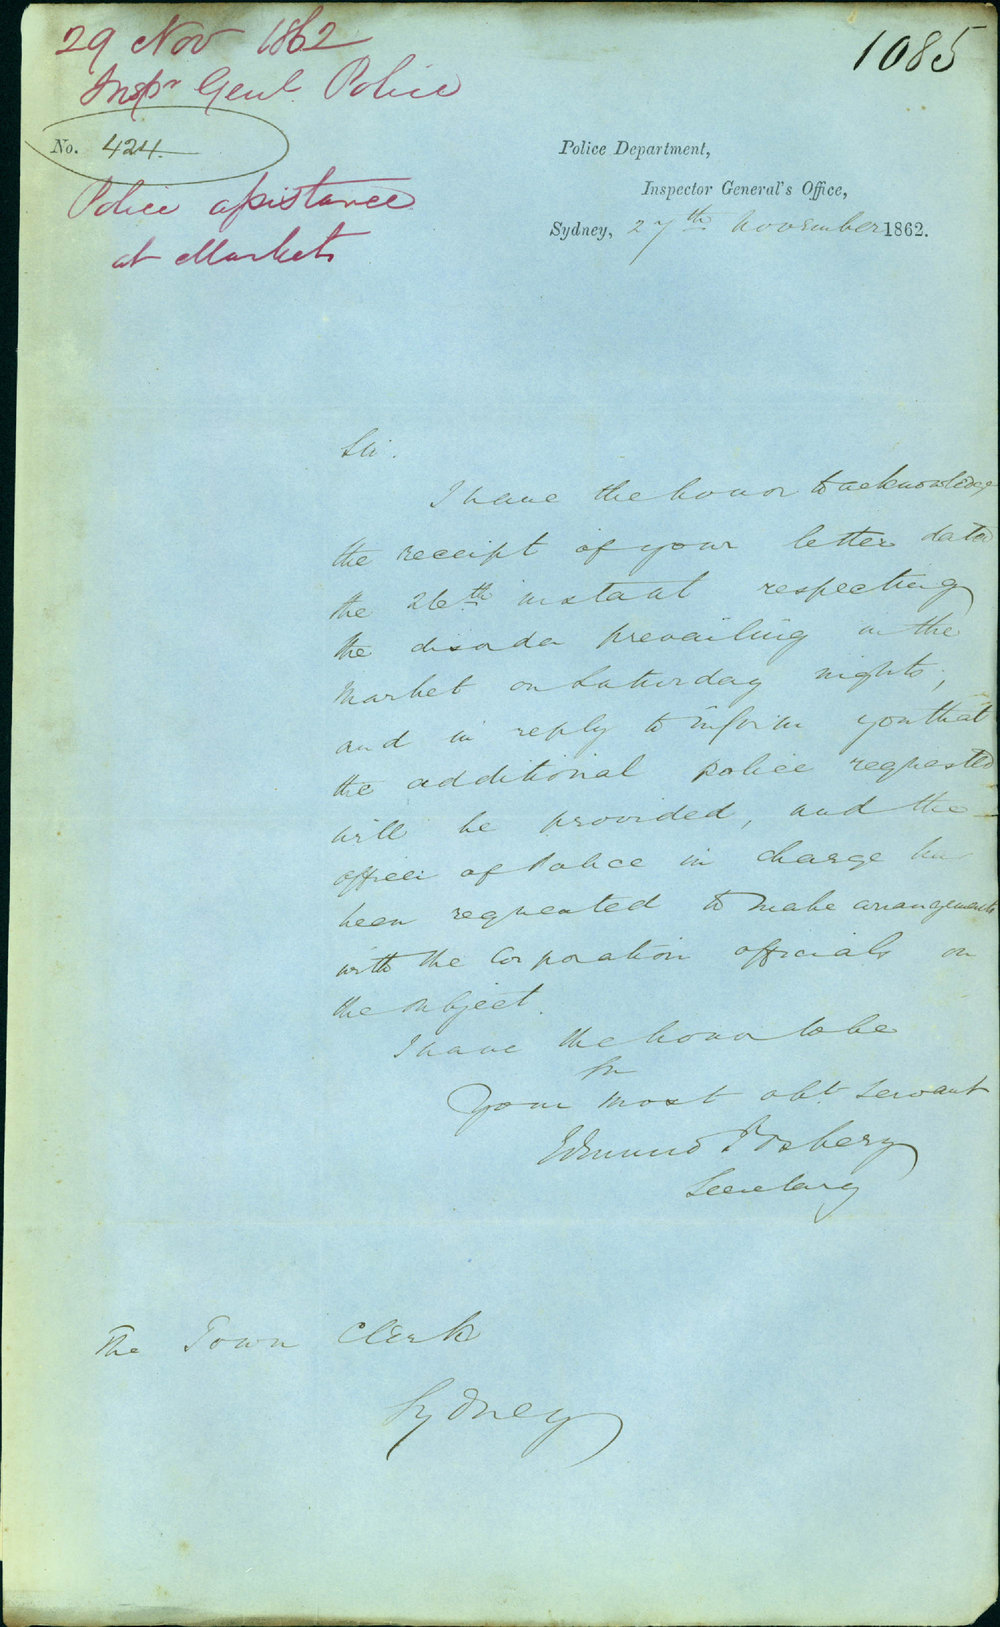 29 Nov 1862
1085
Inspr Genl Police
No. 424.
Police assistance
at Markets
Police Department,
Inspector General's Office,
Sydney, 27th November 1862.
Sir.
I have the honor to acknowledge
the receipt of your letter dated
the 26th instant respecting
the disorder prevailing in the
Market on Saturday nights,
and in reply to inform you that
the additional police requested
will be provided, and the
officer of Police in charge has
been requested to make arrangements
with the Corporation officials on
the subject.
I have the honor to be
Sir
Your most obt servant
Edmund Fosbery
Secretary
The Town Clerk
Sydney